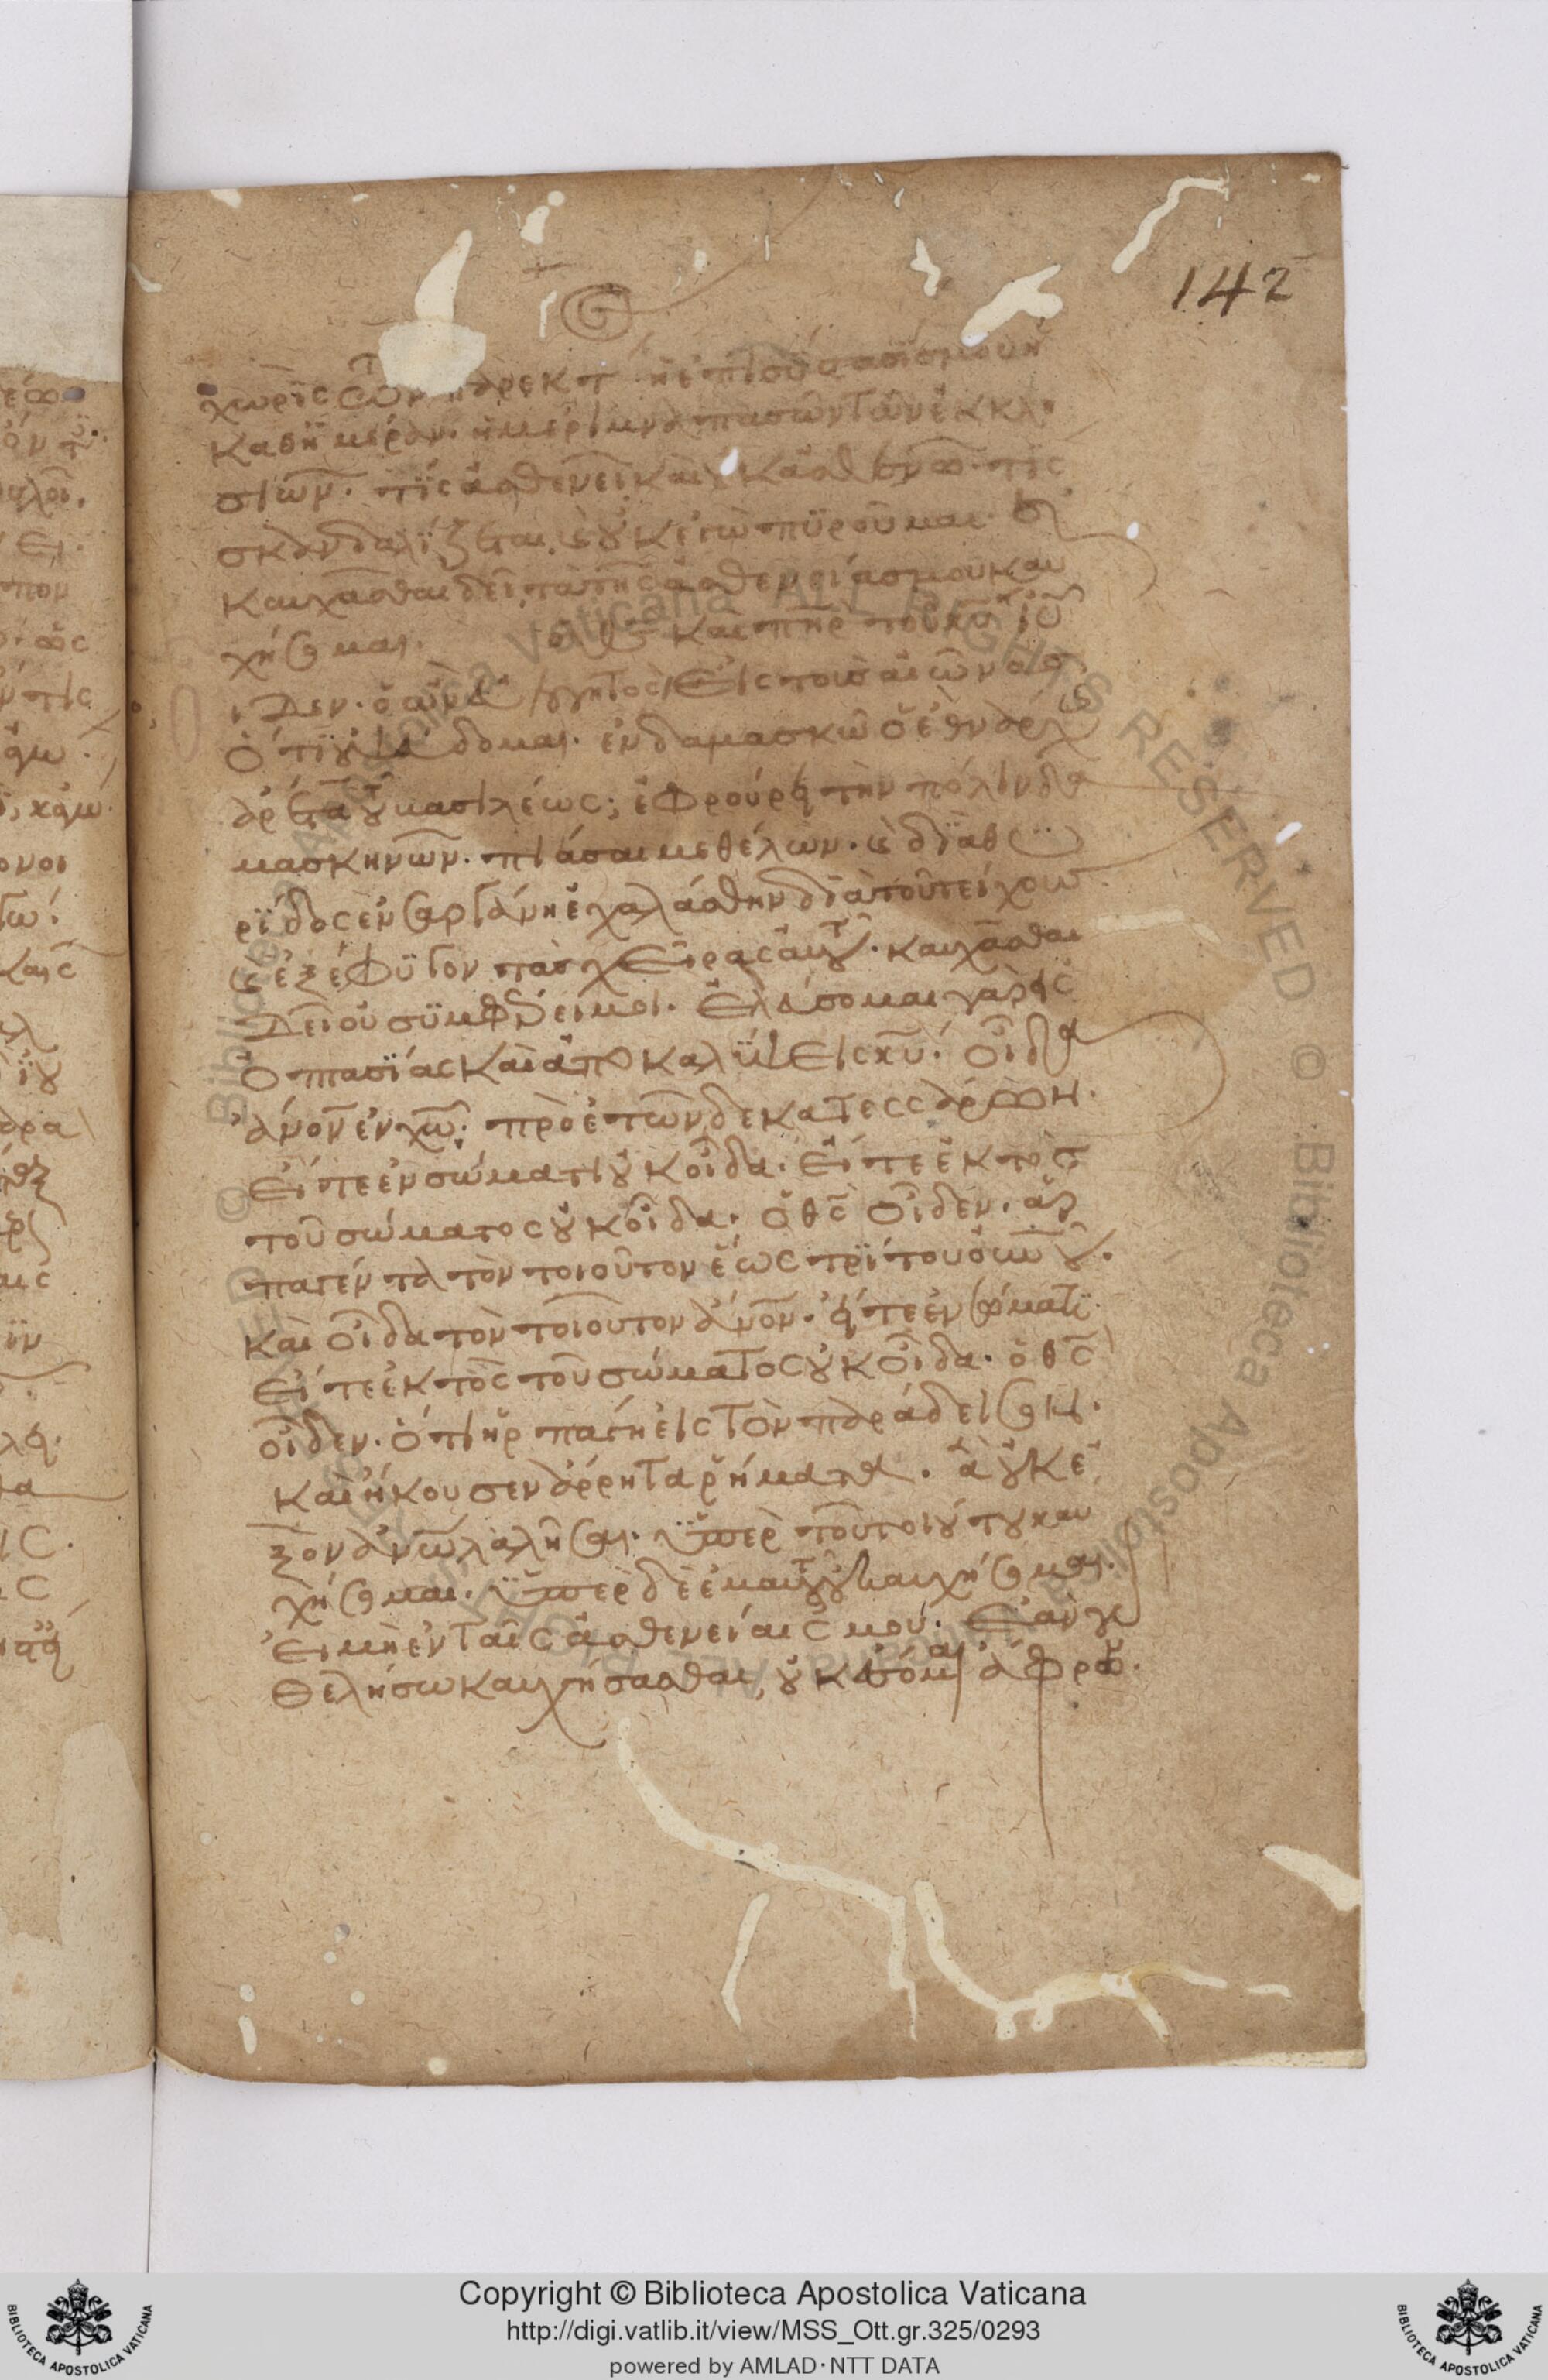 142
χωρὶς τῶν παρεκτ ἡ ἐπισύστασίς μου ἡ
καθημέραν. ἡ μέριμνα πασῶν τῶν ἐκκλη
σιῶν. τίς ἀσθενεῖ καὶ οὐκ ἀσθενῶ. τίς
σκανδαλίζεται, κ οὐκ ἐγὼ πυροῦμαι. εἰ
καυχᾶσθαι δεῖ τὰ τῆς ἀσθενείας μου καυ
χήσομαι. ὁ θς καὶ πηρ τοῦ κυ ιυ
οἶδεν. ὁ ὢν εὐλογητὸς εἰς τοὺς αἰῶνας
ὅτι οὐ ψεύδομαι. ἐν δαμασκῶ ὁ ἐθνάρχης
ἀρέτα τοῦ βασιλέως; ἐφρούρει τὴν πόλιν δα
μασκηνῶν. πιάσαι με θέλων. κ διὰ θυ
ρίδος ἐν σαργάνη ἐχαλάσθην διὰ τοῦ τείχους
κ ἐξέφυγον τὰς χεῖρας αὐτοῦ. καυχᾶσθαι
δεῖ οὐ συμφέρει μοι. ἐλεύσομαι γὰρ εἰς
ὀπτασίας καὶ ἀποκαλύψεις κυ. οἶδα
ἄνον ἐν χω. πρὸ ἐτῶν δεκατεσσάρων.
εἴτε ἐν σώματι οὐκ οἶδα. εἴτε ἐκτὸς
τοῦ σώματος οὐκ οἶδα. ὁ θς οἶδεν. ἁρ
παγέντα τὸν τοιοῦτον ἕως τρίτου οὐνοῦ.
καὶ οἶδα τὸν τοιοῦτον ἄνον. εἴτε ἐν σώματι
εἴτε ἐκτὸς τοῦ σώματος οὐκ οἶδα. ὁ θς
οἶδεν. ὅτι ἡρπάγη εἰς τὸν παράδεισον.
καὶ ἤκουσεν ἄρρητα ῥήματα. ἃ οὐκ ἐ
ξὸν ἀνω λαλῆσαι. ὑπὲρ τοῦ τοιούτου καυ
χήσομαι. ὑπὲρ δὲ ἐμαυτοῦ οὐ καυχήσομαι.
εἰ μὴ ἐν ταῖς ἀσθενείαις μου. ἐὰν γὰρ
θελήσω καυχήσασθαι, οὐκ ἔσομαι ἄφρων.
Copyright © Biblioteca Apostolica Vaticana
http://digi.vatlib.it/view/MSS_Ott.gr.325/0293
powered by AMLAD·NTT DATA